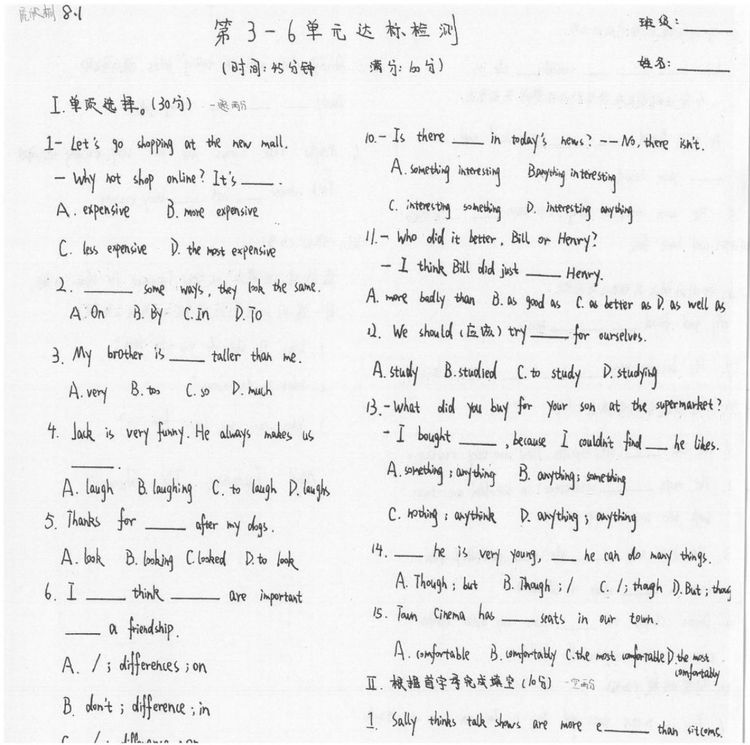 8.1
第3-6单元达标检测
(时间:45分钟 满分:60分)
班级:
姓名:
I. 单项选择。(30分) 一题两分
1- Let's go shopping at the new mall.
- Why not shop online? It's ______
A. expensive B. more expensive
C. less expensive D. the most expensive
2. ______ some ways, they look the same.
A. On B. By C. In D. To
3. My brother is ____ taller than me.
A. very B. too C. so D. much
4. Jack is very funny. He always makes us
______.
A. laugh B. laughing C. to laugh D. laughs
5. Thanks for ____ after my dogs.
A. look B. looking C. looked D. to look
6. I ____ think _____ are important
____ a friendship.
A. /; differences; on
B. don't; difference; in
C. /; difference; on
10. - Is there ____ in today's news? -- No, there isn't.
A. something interesting B. anything interesting
C. interesting something D. interesting anything
11. - Who did it better, Bill or Henry?
- I think Bill did just ____ Henry.
A. more badly than B. as good as C. as better as D. as well as
12. We should (应该) try ____ for ourselves.
A. study B. studied C. to study D. studying
13. - What did you buy for your son at the supermarket?
- I bought ____, because I couldn't find ___ he likes.
A. something; anything B. anything; something
C. nothing; anythink D. anything; anything
14. ____ he is very young, ___ he can do many things.
A. Though; but B. Though; / C. /; though D. But; thoug
15. Town Cinema has ____ seats in our town.
A. comfortable B. comfortably C. the most comfortable D. the most
comfortably
II. 根据首字母完成填空 (10分) 一空两分
1. Sally thinks talk shows are more e______ than sitcoms.